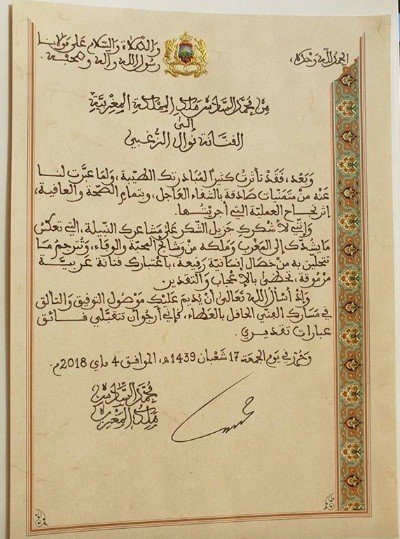 الحمد لله وحده،
والصلاة والسلام على مولانا
رسول الله وآله وصحبه.
من محمد السادس ملك المملكة المغربية
إلى
الفنانة نوال الزغبي
وبعد، فقد تأثرت كثيرا لمبادرتك الطيبة، ولما عبرت لنا
عنه من متمنيات صادقة بالشفاء العاجل، وبتمام الصحة والعافية،
إثر نجاح العملية التي أجريتها.
وإني لأشكرك جزيل الشكر على مشاعرك النبيلة، التي تعكس
ما يشدك إلى المغرب وملكه من وشائج المحبة والوفاء، وتترجم ما
تتحلين به من خصال إنسانية رفيعة، باعتبارك فنانة عربية
مرموقة، تحظى بالإعجاب والتقدير.
وإذ أسأل الله تعالى أن يديم عليك موصول التوفيق والتألق
في مسارك الفني الحافل بالعطاء، فإني أرجو أن تتقبلي فائق
عبارات تقديري.
وحرر في يوم الجمعة 17 شعبان 1439هـ، الموافق 4 ماي 2018م.
محمد السادس
ملك المغرب